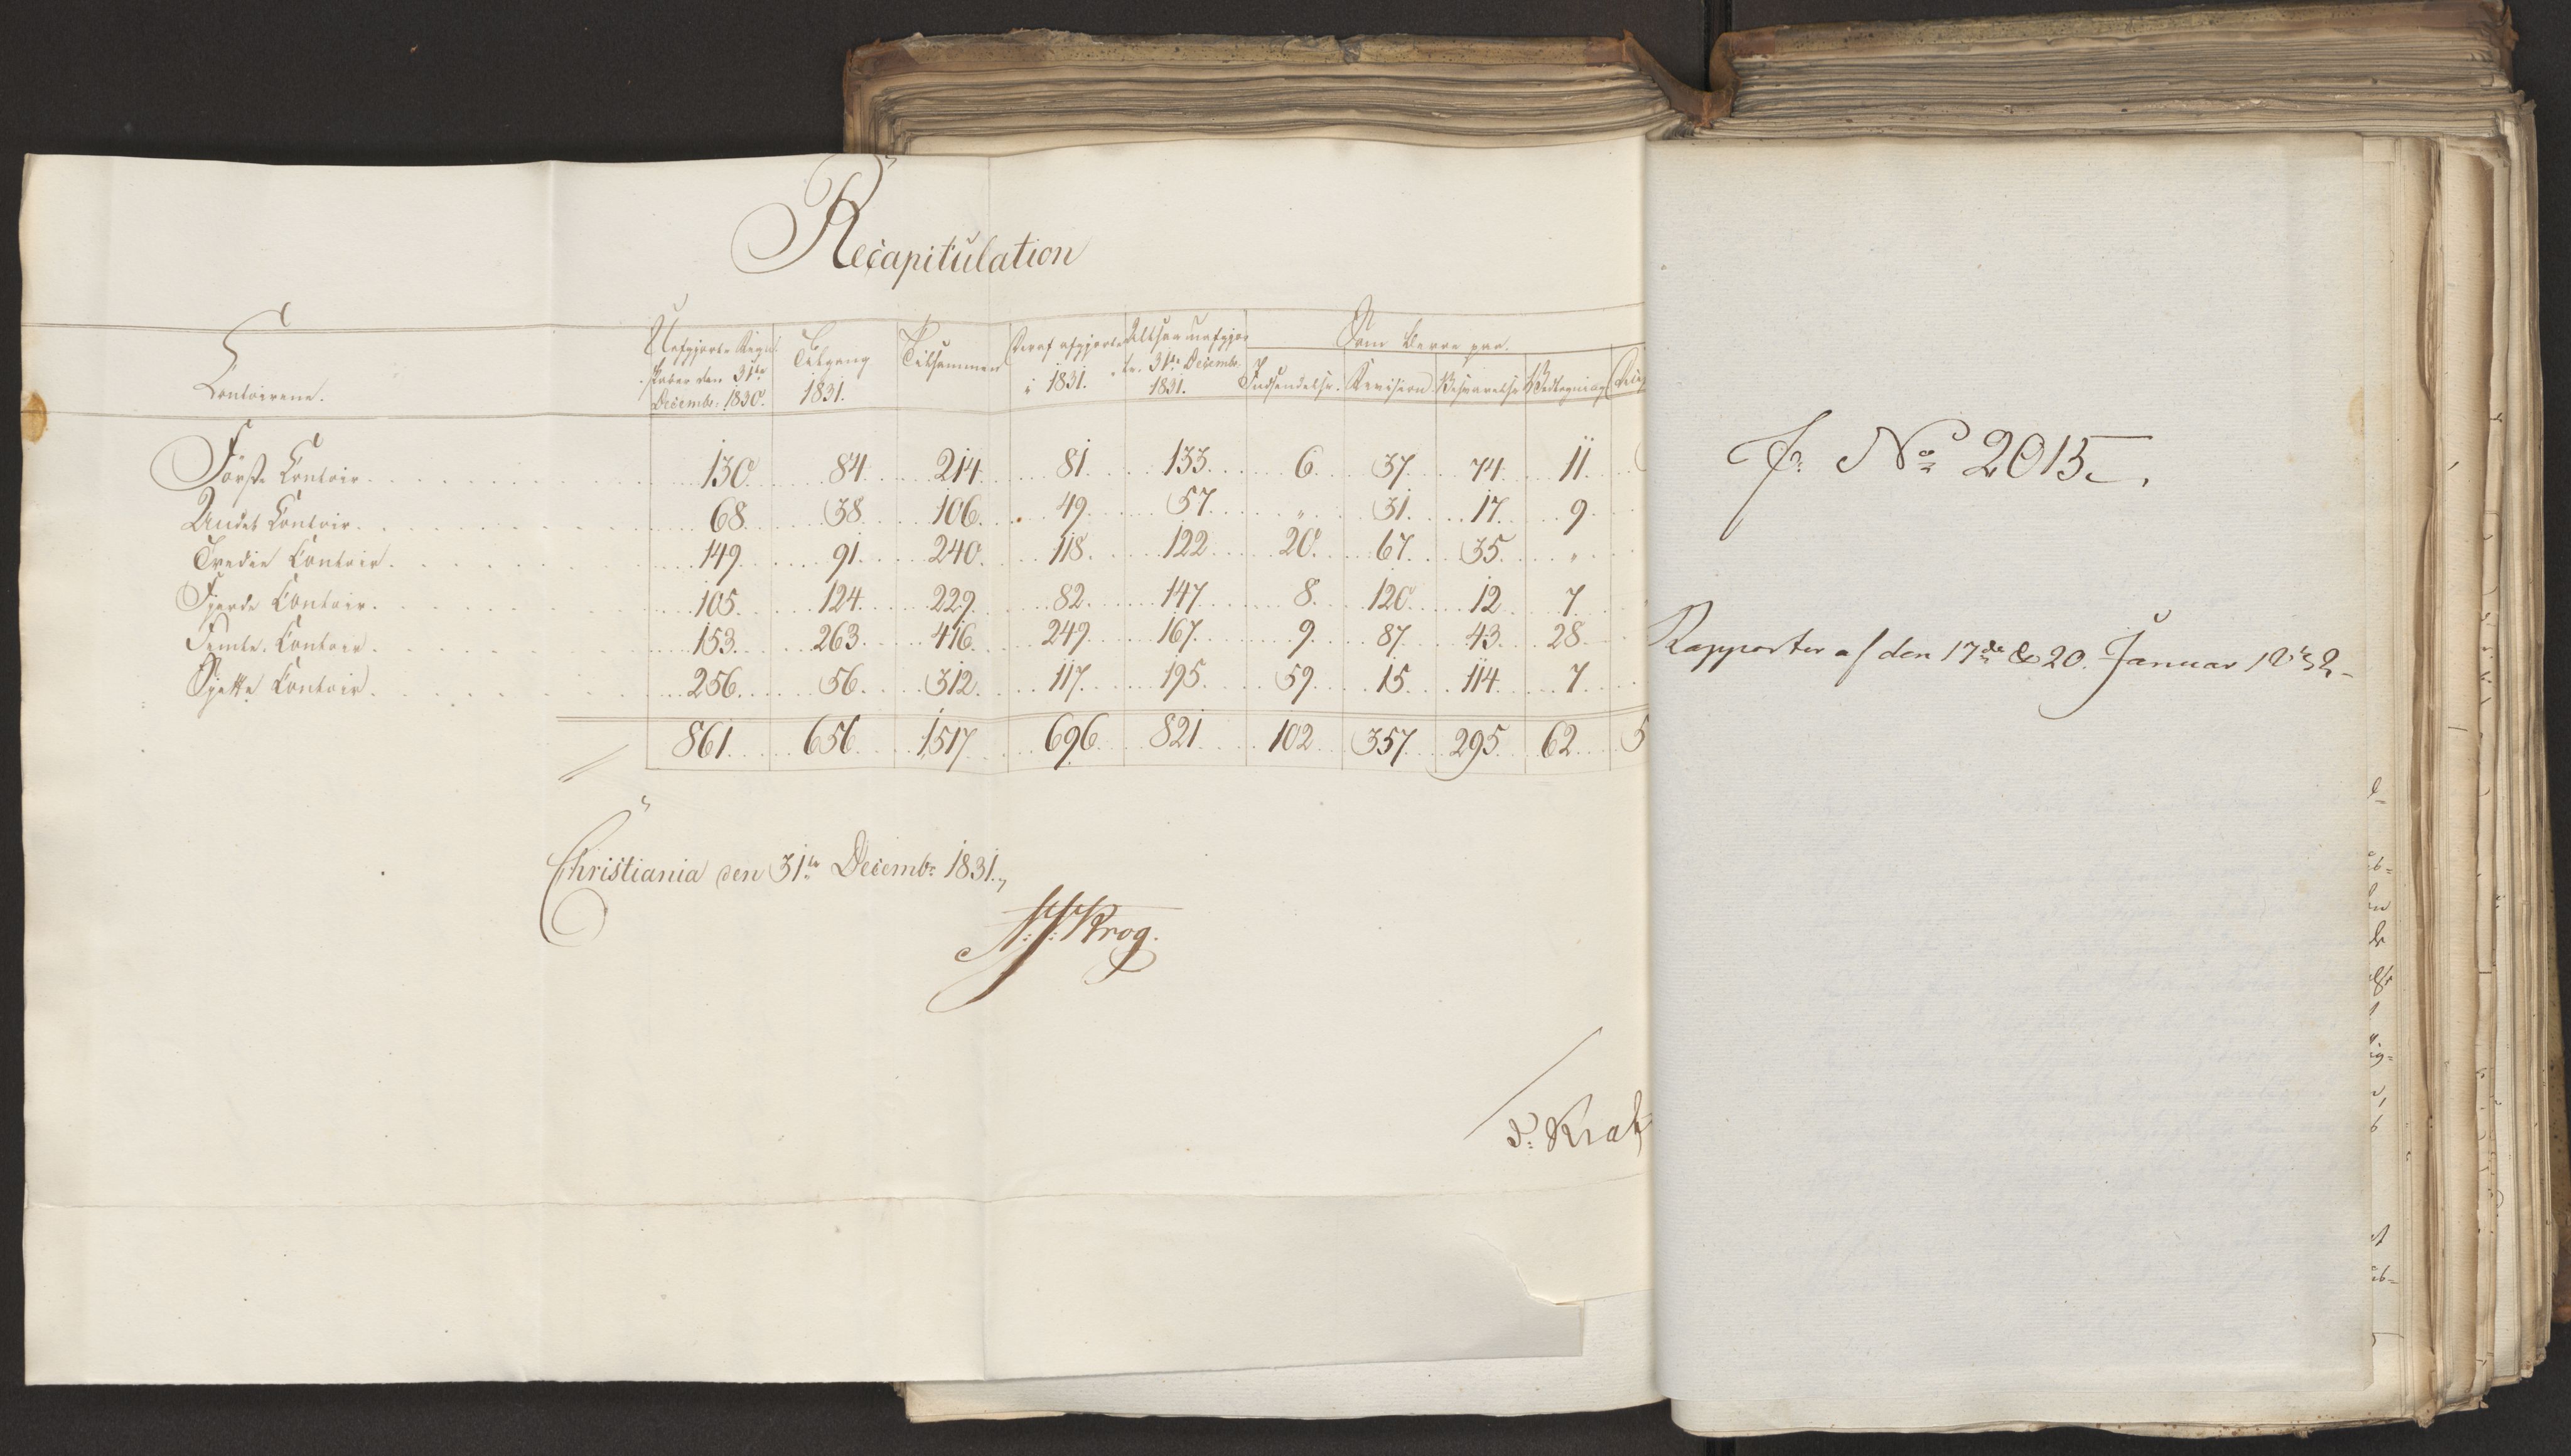 Recapitulation
Contoirene.
Uafgjorte Regn-
skaber den 31te
Decembr: 1830.
Tilgang
1831.
Tilsammen
Heraf afgjorte
i 1831.
Altsaa uafgjor
te. 31te Decembr.
1831.
Som beroe paa.
Indsendelse. Revision Besvarelse Decis
Första Contoir 130 84 214 81 133 6 37 74 11
Andet Contoir 68 38 106 49 57 " 31 17 9
Tredie Contoir 149 91 240 118 122 20 67 35 "
Fjerde Contoir 105 124 229 82 147 8 120 12 7
Femte Contoir 153 263 416 249 167 9 87 43 28
Sjette Contoir 256 56 312 117 195 59 15 114 7
861 656 1517 696 821 102 357 295 62 5
Christiania den 31te Decembr 1831.
Krog.
J. No 2015.
Rapporter af den 17de & 20. Januar 1832